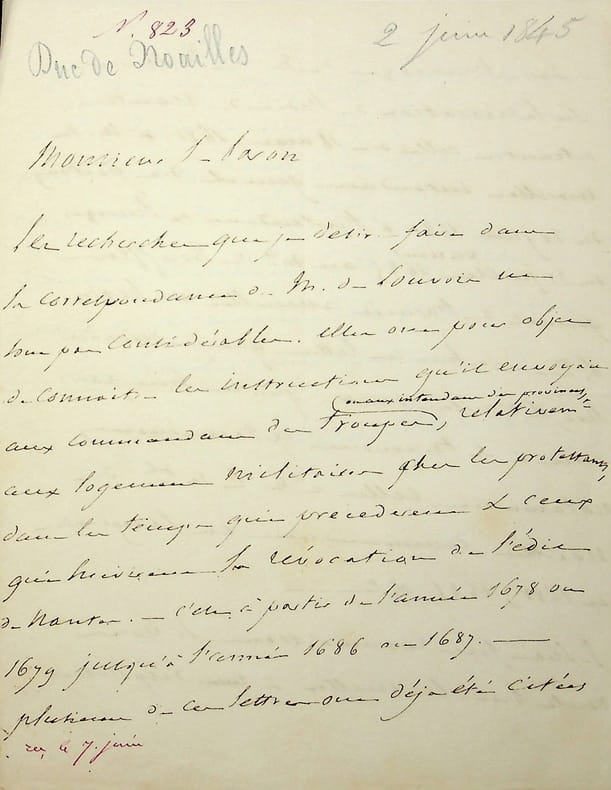 N. 823
Duc de Noailles
2 juin 1845
Monsieur le baron
les recherches que je desire faire dans
la correspondance de M. de Louvois ne
sont pas considérables. elles ont pour objet
de connaitre les instructions qu'il envoyait
(ou aux intendans des provinces)
aux commandans des troupes, relativemt
aux logemens militaires chez les protestans,
dans les temps qui precederent & ceux
qui suivirent la révocation de l'édit
de Nantes. — c'est à partir de l'année 1678 ou
1679 jusqu'à l'année 1686 ou 1687. —
plusieurs de ces lettres ont déjà été citées
rec. le 7. juin